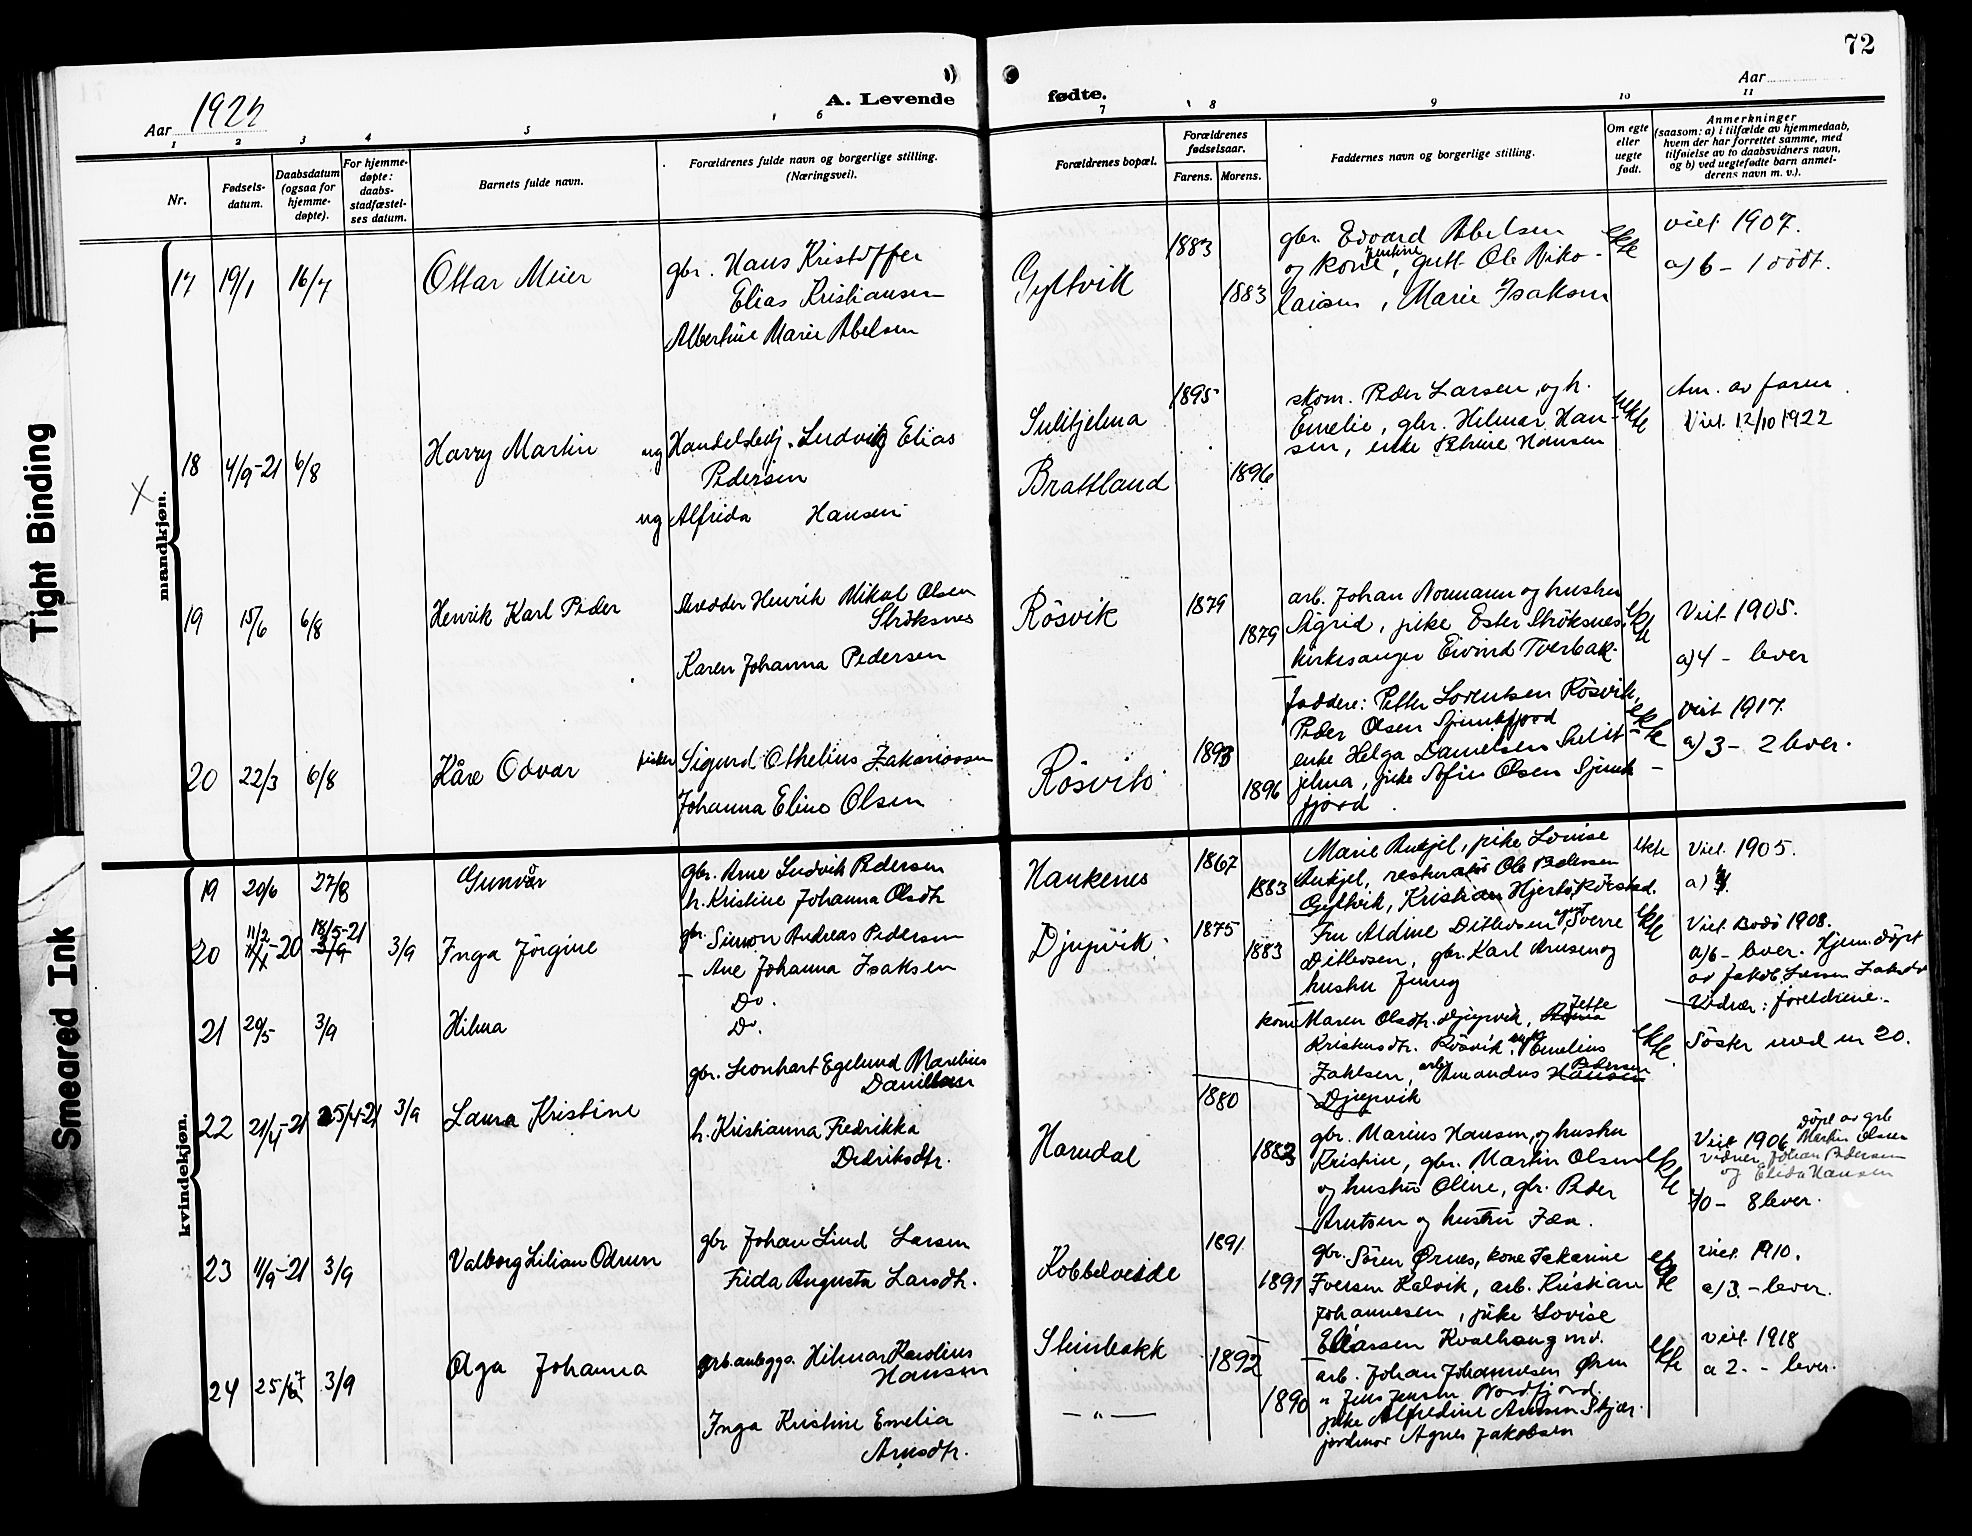 72
Aar 1922
A. Levende
fødte.
Aar
1 2 3 4 5 6 7 8 9 10 11
Nr.
Fødsels-
datum.
Daabsdatum
(ogsaa for
hjemme-
døpte).
For hjemme-
døpte:
daabs-
stadfæstel-
ses datum.
Barnets fulde navn.
Forældrenes fulde navn og borgerlige stilling.
(Næringsvei).
Forældrenes bopæl.
Forældrenes
fødselsaar.
Farens. Morens.
Faddernes navn og borgerlige stilling.
Om egte
eller
uegte
født.
Anmerkninger
(saasom: a) i tilfælde av hjemmedaab,
hvem der har forrettet samme, med
tilføielse av to daabsvidners navn,
og b) ved uegtefødte barn anmel-
derens navn m. v.).
Tight Binding
Smeared Ink
mandkjøn.
17 19/1 16/7 Ottar Meier
gbr. Hans Kristoffer
Elias Kristiansen
Albertine Marie Abelsen
Gyltvik
1883
1883
gbr. Edvard Abelsen
og kone, gutt Ole Niko-
laisen, Marie Isaksen
ekte
viet 1907.
a) 6 - 1 död.
X
18 4/9-21 6/8 Harry Martin
ug Handelsbetj. Ludvik Elias
Pedersen
ug Alfrida Hansen
Sulitjelma
Brattland
1895
1896
skom. Peder Larsen, og h.
Emelie, gbr. Hilmar Han-
sen, enke Petrine Hansen
ekte
Am. av faren.
Viet 12/10 1922
19 15/6 6/8 Henrik Karl Peder
Skredder Henrik Mikal Olsen
Ströksnes
Karen Johanna Pedersen
Rösvik
1879
1879
arb. Johan Normann og hustru
Sigrid, pike Ester Ströksnes,
kirkesanger Eivind Tverbak.
ekte
Viet 1905.
a) 4 - lever
20 22/3 6/8 Kåre Odvar
fisker Sigurd Othelius Zakariassen
Johanna Eline Olsen
Rösvik
1893
1896
faddere: Petter Lorentsen Rösvik,
Peder Olsen Sjunkfjord
enke Helga Danielsen Sulit-
jelma, pike Sofie Olsen Sjunk-
fjord
ekte
viet 1917.
a) 3 - 2 lever.
kvindekjøn.
19 20/6 27/8 Gunvor
gbr. Arne Ludvik Pedersen
h. Kristine Johanna Olsdtr.
Hankenes
1867
1883
Marie Ankjel, pike Lovise
Ankjel, Ole Pedersen
Gyltvik, Kristian
ekte
Viet 1905.
a)
20 11/2-20 18/5-21 3/9 3/9 Inga Jörgine
gbr. Simon Andreas Pedersen
- Ane Johanna Isaksen
Djupvik.
1875
1883
Fru Aldine Ditlevsen, agent Sverre
Ditlevsen, gbr. Karl Arnsen og
hustru Jenny
ekte
Viet Bodö 1908.
a/6 - lever. Hjem. döpt
av Jakob Larsen
Vidner: foreldrene.
21 20/5 3/9 Hilma
Do.
Do.
kone Maren Olsdtr. Djupvik, Jette
Kristensdtr. Rösvik, Emelius
Zahlsen, arb. Amandus Hansen Pedersen
Djupvik
ekte.
Söster med nr 20.
22 21/4-21 25/4-21 3/9 Laura Kristine
gbr. Leonhart Egelund Marelius
Danielsen
h. Kristianna Fredrikka
Dedriksdtr.
Harndal
1880
1883
gbr. Marius Hansen, og hustru
Kristine, gbr. Martin Olsen
og hustru Oline, gbr. Peder
Arntsen og hustru
ekte
Viet 1906, Döpt av grb
Martin Olsen
vidner Johan Pedersen
og Elida Hansen
- 8 lever.
23 11/9-21 3/9 Valborg Lilian Odrun
gbr Johan Lind Larsen
Frida Augusta Larsdtr.
Kobbelveide
1891.
1891
gbr. Sören Ørnes, kone Zakarine
Iversen Kalvik, arb. Kristian
Johannesen, pike Lovise
Eliassen Kvalhaug m.v.
ekte
viet. 1910.
a) 3. - lever.
24 25/7 3/9 Olga Johanna
arb. anleggs. Hilmar Karolius
Hansen
Inga Kristine Emelia
Arnsdtr.
Steinbakk
- " -
1892
1890
arb. Johan Johannesen Ørn
" Jens Jensen Nordfjord.
pike Alfredine Arnsen Skjær.
jordmor Agnes Jakobsen
ekte
viet. 1918
a 2. - lever.